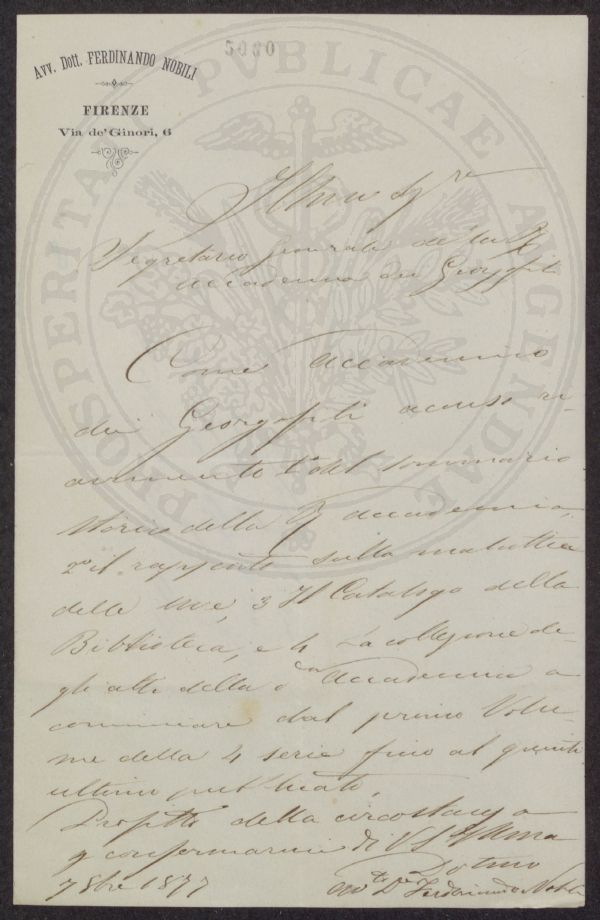 5080
Avv. Dott. FERDINANDO NOBILI
FIRENZE
Via de' Ginori, 6
PROSPERITATI PVBLICAE AVGENDAE
Illmo Sigre
Segretario Generale della R
Accademia dei Georgofili
Come Accademico
dei Georgofili accuso ri-
cevimento 1° del sommario
storico della R Accademia,
2° il rapporto sulla malattia
delle uve, 3 Il Catalogo della
Biblioteca, e 4 La collezione de-
gli atti della Accademia a
cominciare dal primo Volu-
me della 4 serie fino al quinto
ultimo pubblicato,
Profitto della circostanza
p confermarmi di V S Illma
Dotmo
7bre 1877
Avv. Dre Ferdinando Nobili